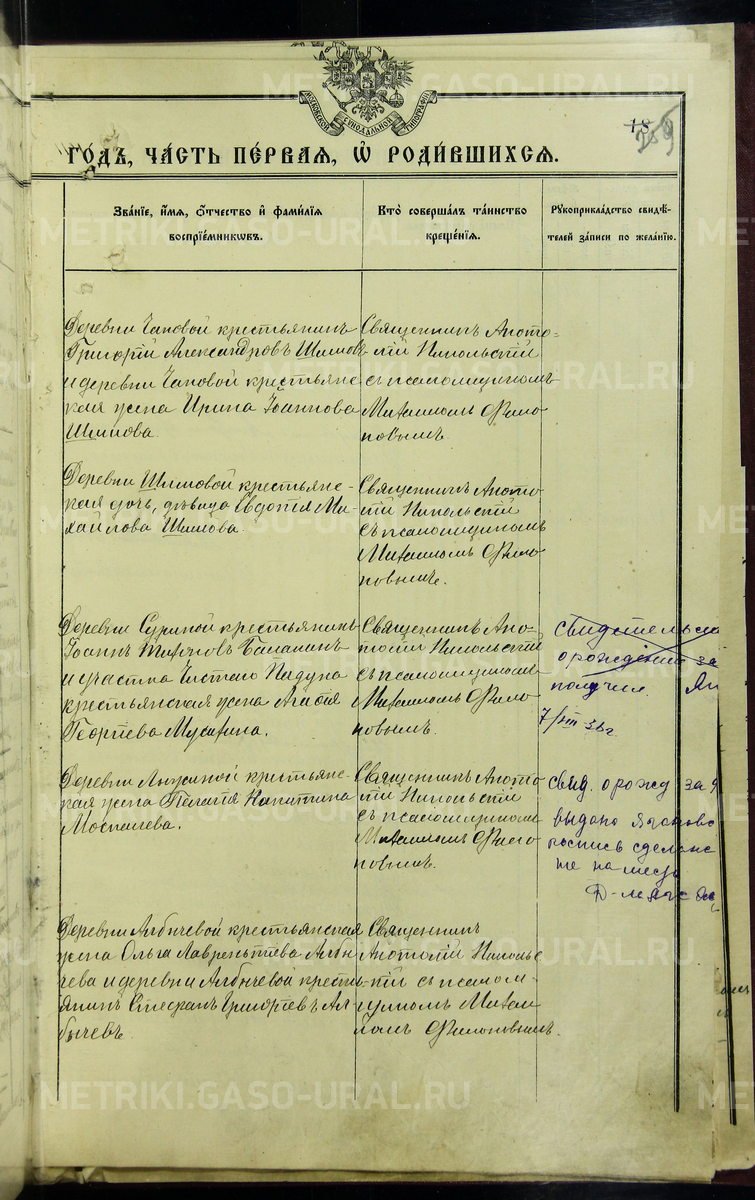 МОСКОВСКОЙ СѴНОДАЛЬНОЙ ТИПОГРАФІИ
18
259
ГОДЪ, ЧАСТЬ ПЕРВАЯ, Ѡ РОДИВШИХСЯ.
Званіе, имя, отчество и фамилія
воспріемниковъ.
Кто совершалъ таинство
крещенія.
Рукоприкладство свидѣ-
телей записи по желанію.
Деревни Чаповой крестьянинъ
Григорій Александровъ Шшиовъ
и деревни Чаповой крестьянс
кая жена Ирина Іоаннова
Священникъ Анато=
лій Никольскій
съ псаломщикомъ
Михаиломъ Фило
новымъ.
Деревни крестьянс-
кая дочь, дѣвица Евдотія Ми-
хайлова
Священникъ Анато
лій Никольскій
съ псаломщикомъ
Михаиломъ Фило
новымъ.
Деревни крестьянинъ
Іоаннъ
и участка Чистаго Падуна
крестьянская жена Агафія
Георгіева
Священникъ Ана-
толій Никольскій
съ псаломщикомъ
Михаиломъ Фило
новымъ.
свидетельст
о рождении за
получил.
7/VIII 36 г.
Деревни крестьянс-
кая жена Пелагія Капитина
Москалева.
Священникъ Анато
лій Никольскій
съ псаломщикомъ
Михаиломъ Фило
новымъ.
свид. о рожд за
выдано
роспись сделанс
же на месте
Деревни Албычевой крестьянская
жена Ольга Лаврентьева Албы
чева и деревни Албычевой кресть
янинъ Стефанъ Григорьевъ Ал-
бычевъ
Священникъ
Анатолій Николь
скій съ псалом-
щикомъ Михаи
ломъ Филоновымъ.
METRIKI.GASO-URAL.RU